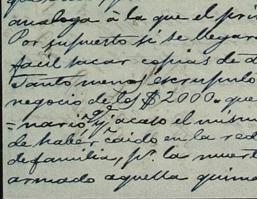 analoga á la que el pri
Por supuesto si se llegara
facil sacar copias de d
Tanto menos escrupulo
negocio de los $2000.= que
=nario, q.e acaso el mism
de haber caido en la red
de familia, p.r la muert
armado aquella quime